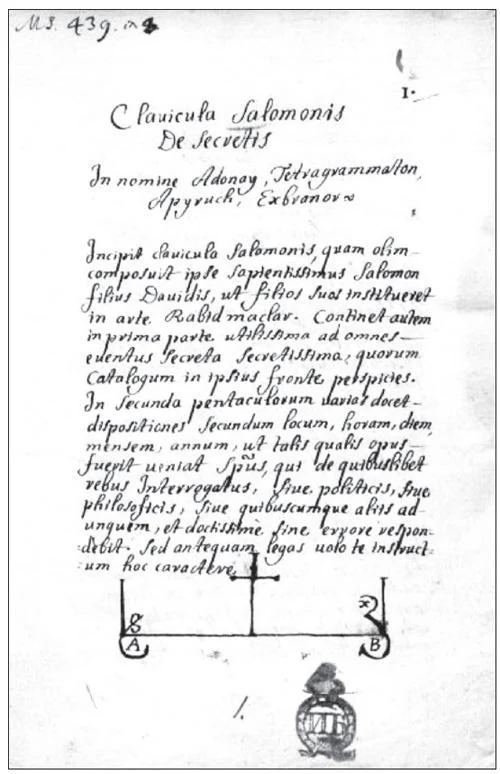 MS. 439.
1.
Clauicula Salomonis
De Secretis
In nomine Adonay, Tetragrammaton,
Apyruch, Exbranor
Incipit clauicula Salomonis, quam olim
composuit ipse sapientissimus Salomon
filius Dauidis, ut filios suos institueret
in arte. Rabidmaclar. Continet autem
in prima parte. utilissima ad omnes
euentus Secreta Secretissima, quorum
Catalogum in ipsius fronte perspicies.
In Secunda pentaculorum varias docet
dispositiones Secundum locum, horam, diem,
mensem, annum, ut talis qualis opus
fuerit ueniat Spũs, qui de quibuslibet
rebus Interrogatus, siue. politicis, siue
philosoficis, siue quibuscumque aliis ad
unguem, et doctissimè sine errore respon-
debit. Sed antequam legas uolo te instruct-
um hoc caractere
A B
1.